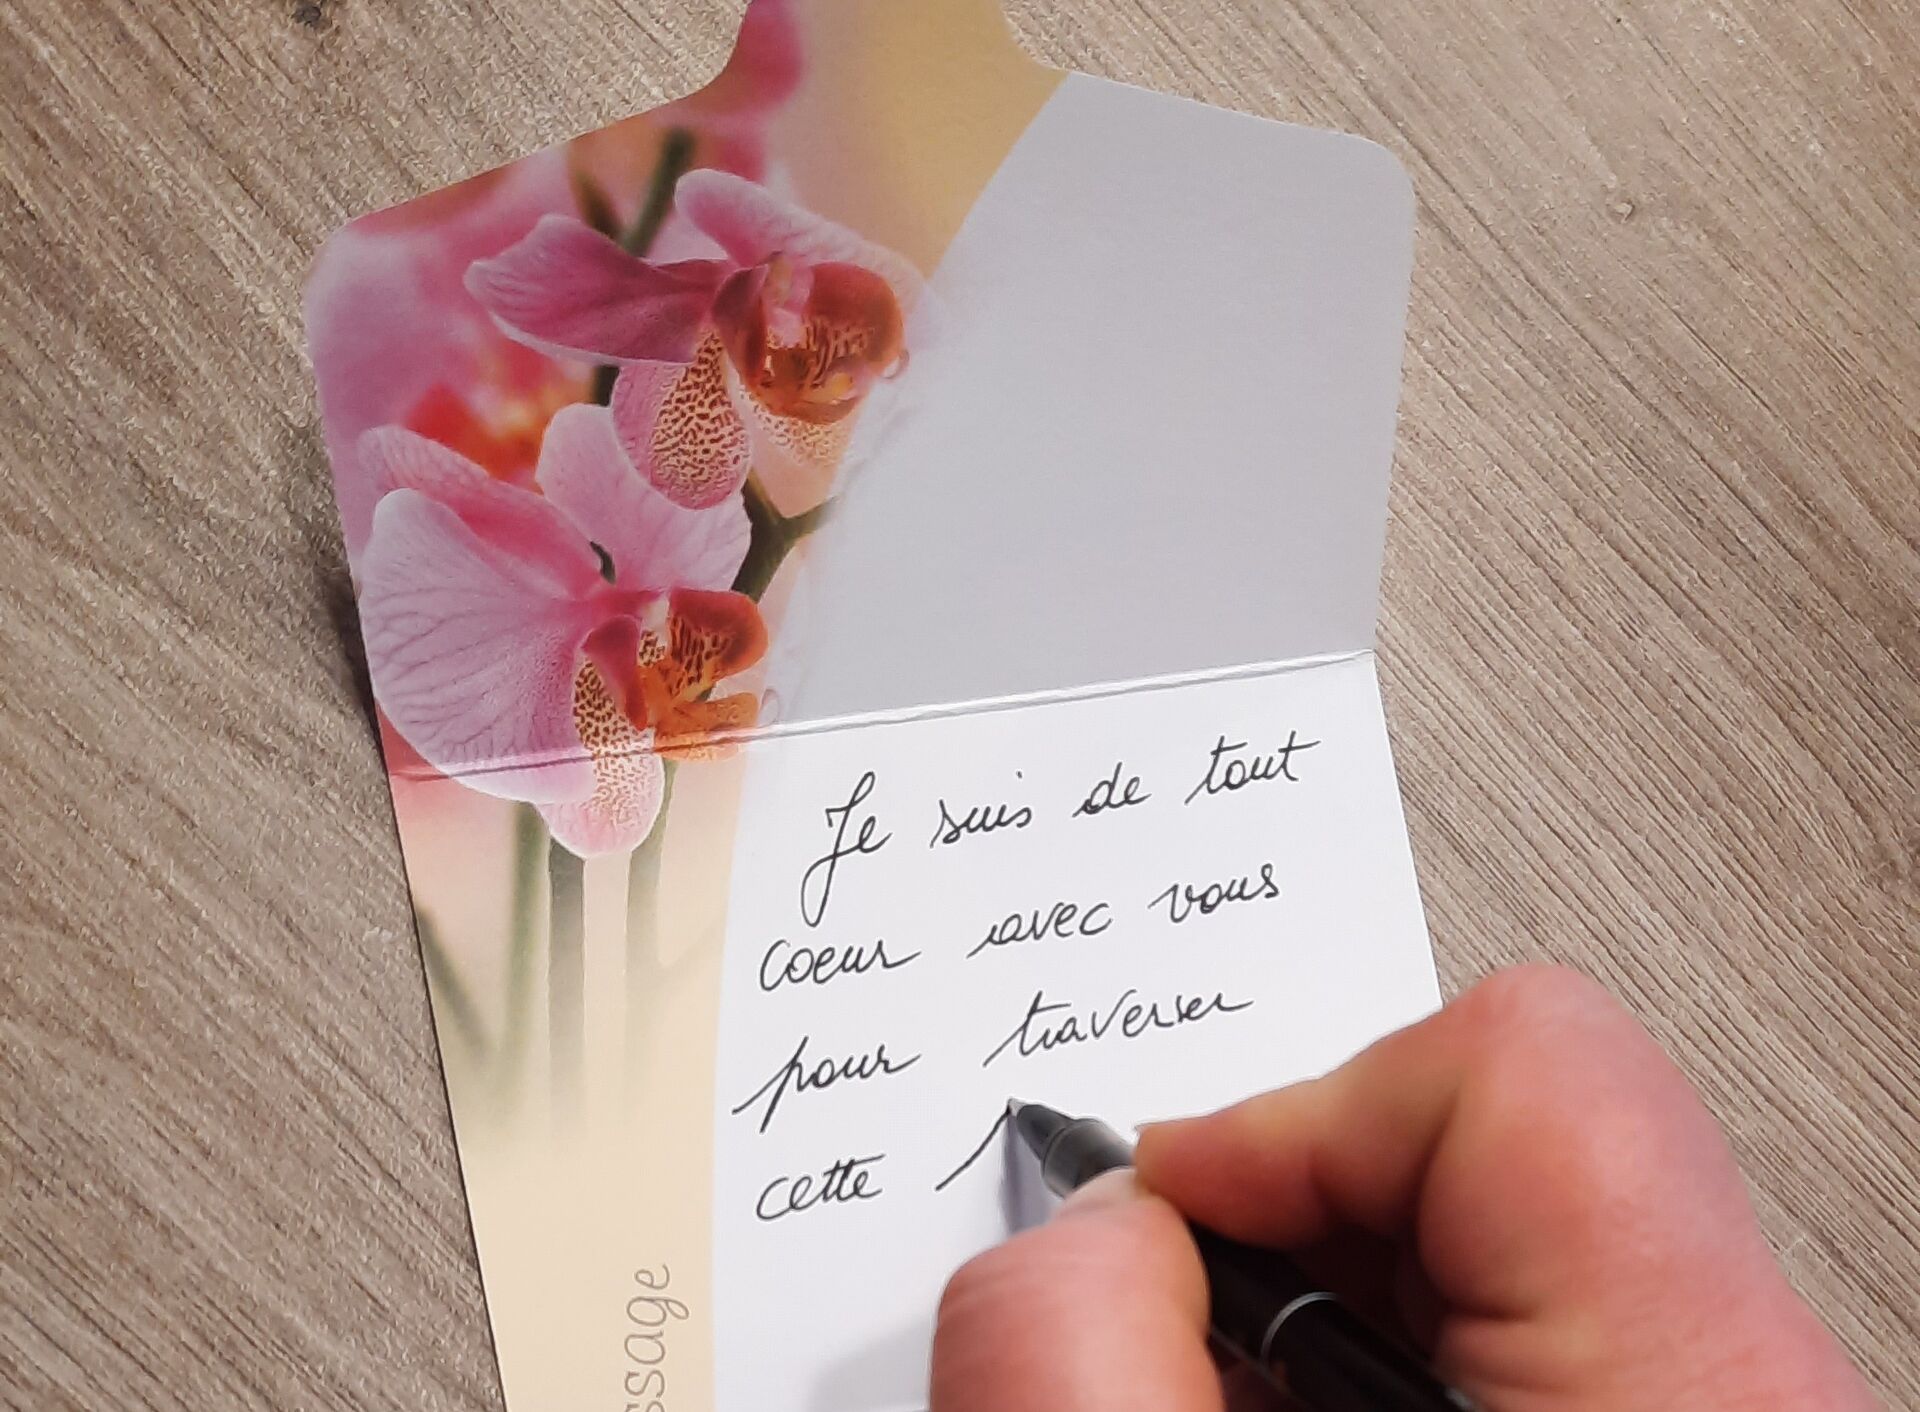 Je suis de tout
coeur avec vous
pour traverser
cette
ssage